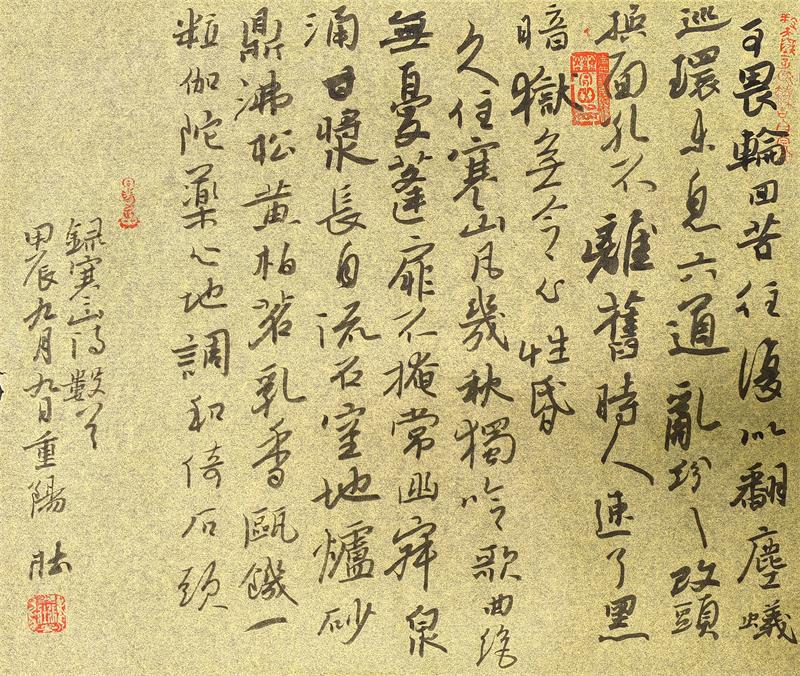 可畏輪回苦往復似翻塵蟻
巡環未息六道亂紛〻改頭
換面孔不離舊時人速了黑
暗獄無令心性昏
久住寒山凡幾秋獨吟歌曲絕
無憂蓬扉不掩常幽寂泉
涌甘漿長自流石室地爐砂
鼎沸松黄柏茗乳香甌饑一
粒伽陀藥心地調和倚石頭
録寒山詩數首
甲辰九月九日重陽